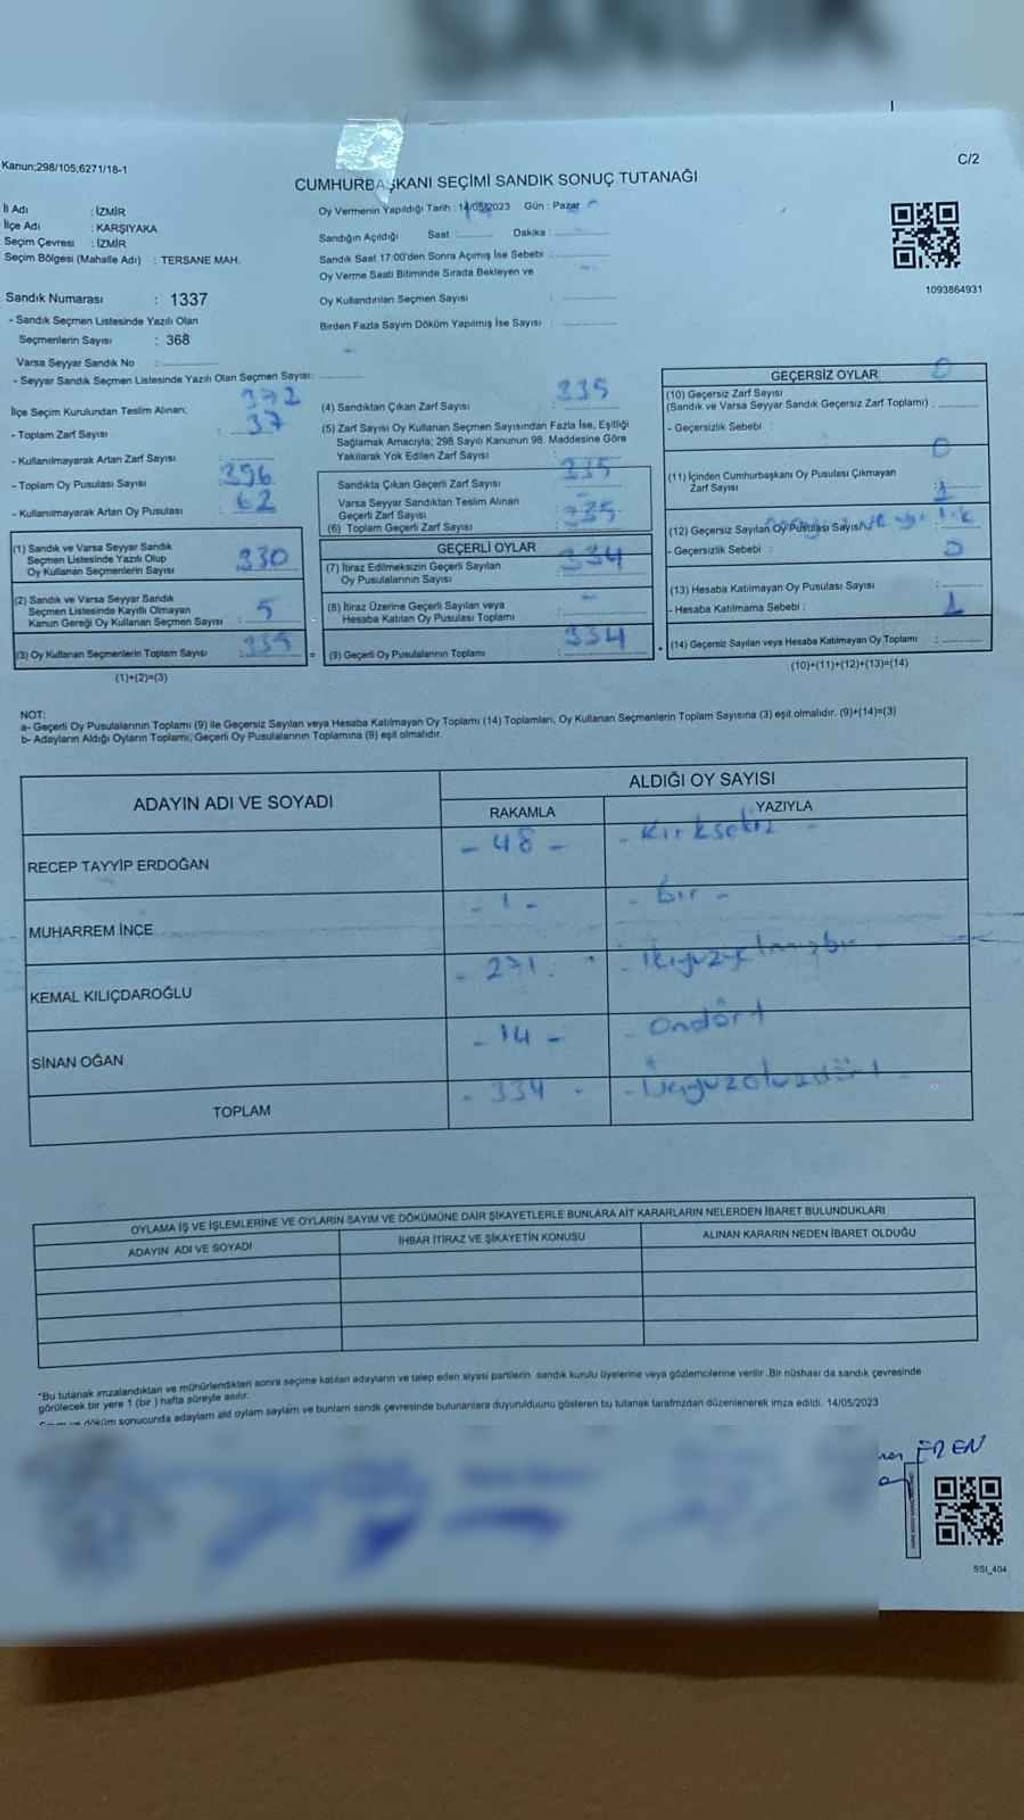 SANDIK
Kanun;298/105;6271/18-1
C/2
CUMHURBAŞKANI SEÇİMİ SANDIK SONUÇ TUTANAĞI
İl Adı : İZMİR
İlçe Adı : KARŞIYAKA
Seçim Çevresi : İZMİR
Seçim Bölgesi (Mahalle Adı) : TERSANE MAH.
Sandık Numarası : 1337
- Sandık Seçmen Listesinde Yazılı Olan
Seçmenlerin Sayısı : 368
Varsa Seyyar Sandık No :
- Seyyar Sandık Seçmen Listesinde Yazılı Olan Seçmen Sayısı:
Oy Vermenin Yapıldığı Tarih : 14/05/2023 Gün : Pazar
Sandığın Açıldığı Saat : Dakika :
Sandık Saat 17:00'den Sonra Açımış İse Sebebi :
Oy Verme Saati Bitiminde Sırada Bekleyen ve
Oy Kullandırılan Seçmen Sayısı :
Birden Fazla Sayım Döküm Yapılmış İse Sayısı :
1093864931
İlçe Seçim Kurulundan Teslim Alınan;
- Toplam Zarf Sayısı : 372
- Kullanılmayarak Artan Zarf Sayısı : 37
- Toplam Oy Pusulası Sayısı : 396
- Kullanılmayarak Artan Oy Pusulası : 62
(1) Sandık ve Varsa Seyyar Sandık
Seçmen Listesinde Yazılı Olup
Oy Kullanan Seçmenlerin Sayısı : 330
(2) Sandık ve Varsa Seyyar Sandık
Seçmen Listesinde Kayıtlı Olmayan
Kanun Gereği Oy Kullanan Seçmen Sayısı : 5
(3) Oy Kullanan Seçmenlerin Toplam Sayısı : 335
(1)+(2)=(3)
(4) Sandıktan Çıkan Zarf Sayısı : 335
(5) Zarf Sayısı Oy Kullanan Seçmen Sayısından Fazla İse, Eşitliği
Sağlamak Amacıyla; 298 Sayılı Kanunun 98. Maddesine Göre
Yakılarak Yok Edilen Zarf Sayısı :
Sandıkta Çıkan Geçerli Zarf Sayısı : 335
Varsa Seyyar Sandıktan Teslim Alınan
Geçerli Zarf Sayısı : -
(6) Toplam Geçerli Zarf Sayısı : 335
GEÇERLİ OYLAR
(7) İtiraz Edilmeksizin Geçerli Sayılan
Oy Pusulalarının Sayısı : 334
(8) İtiraz Üzerine Geçerli Sayılan veya
Hesaba Katılan Oy Pusulası Toplamı : -
(9) Geçerli Oy Pusulalarının Toplamı : 334
GEÇERSİZ OYLAR
(10) Geçersiz Zarf Sayısı
(Sandık ve Varsa Seyyar Sandık Geçersiz Zarf Toplamı) : 0
- Geçersizlik Sebebi :
(11) İçinden Cumhurbaşkanı Oy Pusulası Çıkmayan
Zarf Sayısı : 0
(12) Geçersiz Sayılan Oy Pusulası Sayısı : 1
- Geçersizlik Sebebi :
(13) Hesaba Katılmayan Oy Pusulası Sayısı : 0
- Hesaba Katılmama Sebebi :
(14) Geçersiz Sayılan veya Hesaba Katılmayan Oy Toplamı : 1
(10)+(11)+(12)+(13)=(14)
NOT:
a- Geçerli Oy Pusulalarının Toplamı (9) ile Geçersiz Sayılan veya Hesaba Katılmayan Oy Toplamı (14) Toplamları, Oy Kullanan Seçmenlerin Toplam Sayısına (3) eşit olmalıdır. (9)+(14)=(3)
b- Adayların Aldığı Oyların Toplamı, Geçerli Oy Pusulalarının Toplamına (9) eşit olmalıdır.
ADAYIN ADI VE SOYADI
ALDIĞI OY SAYISI
RAKAMLA YAZIYLA
RECEP TAYYİP ERDOĞAN - 48 - - Kırksekiz -
MUHARREM İNCE - 1 - - Bir -
KEMAL KILIÇDAROĞLU - 271 - - İkiyüzyetmişbir
SİNAN OĞAN - 14 - - Ondört
TOPLAM - 334 - - Üçyüzotuzdört
OYLAMA İŞ VE İŞLEMLERİNE VE OYLARIN SAYIM VE DÖKÜMÜNE DAİR ŞİKAYETLERLE BUNLARA AİT KARARLARIN NELERDEN İBARET BULUNDUKLARI
ADAYIN ADI VE SOYADI İHBAR İTİRAZ VE ŞİKAYETİN KONUSU ALINAN KARARIN NEDEN İBARET OLDUĞU
*Bu tutanak imzalandıktan ve mühürlendikten sonra seçime katılan adayların ve talep eden siyasi partilerin sandık kurulu üyelerine veya gözlemcilerine verilir. Bir nüshası da sandık çevresinde
görülecek bir yere 1 (bir) hafta süreyle asılır.
döküm sonucunda adayların ald oyların sayıları ve bunların sandık çevresinde bulunanlara duyurulduunu gösteren bu tutanak tarafımızdan düzenlenerek imza edildi. 14/05/2023
EREN
SSI_404